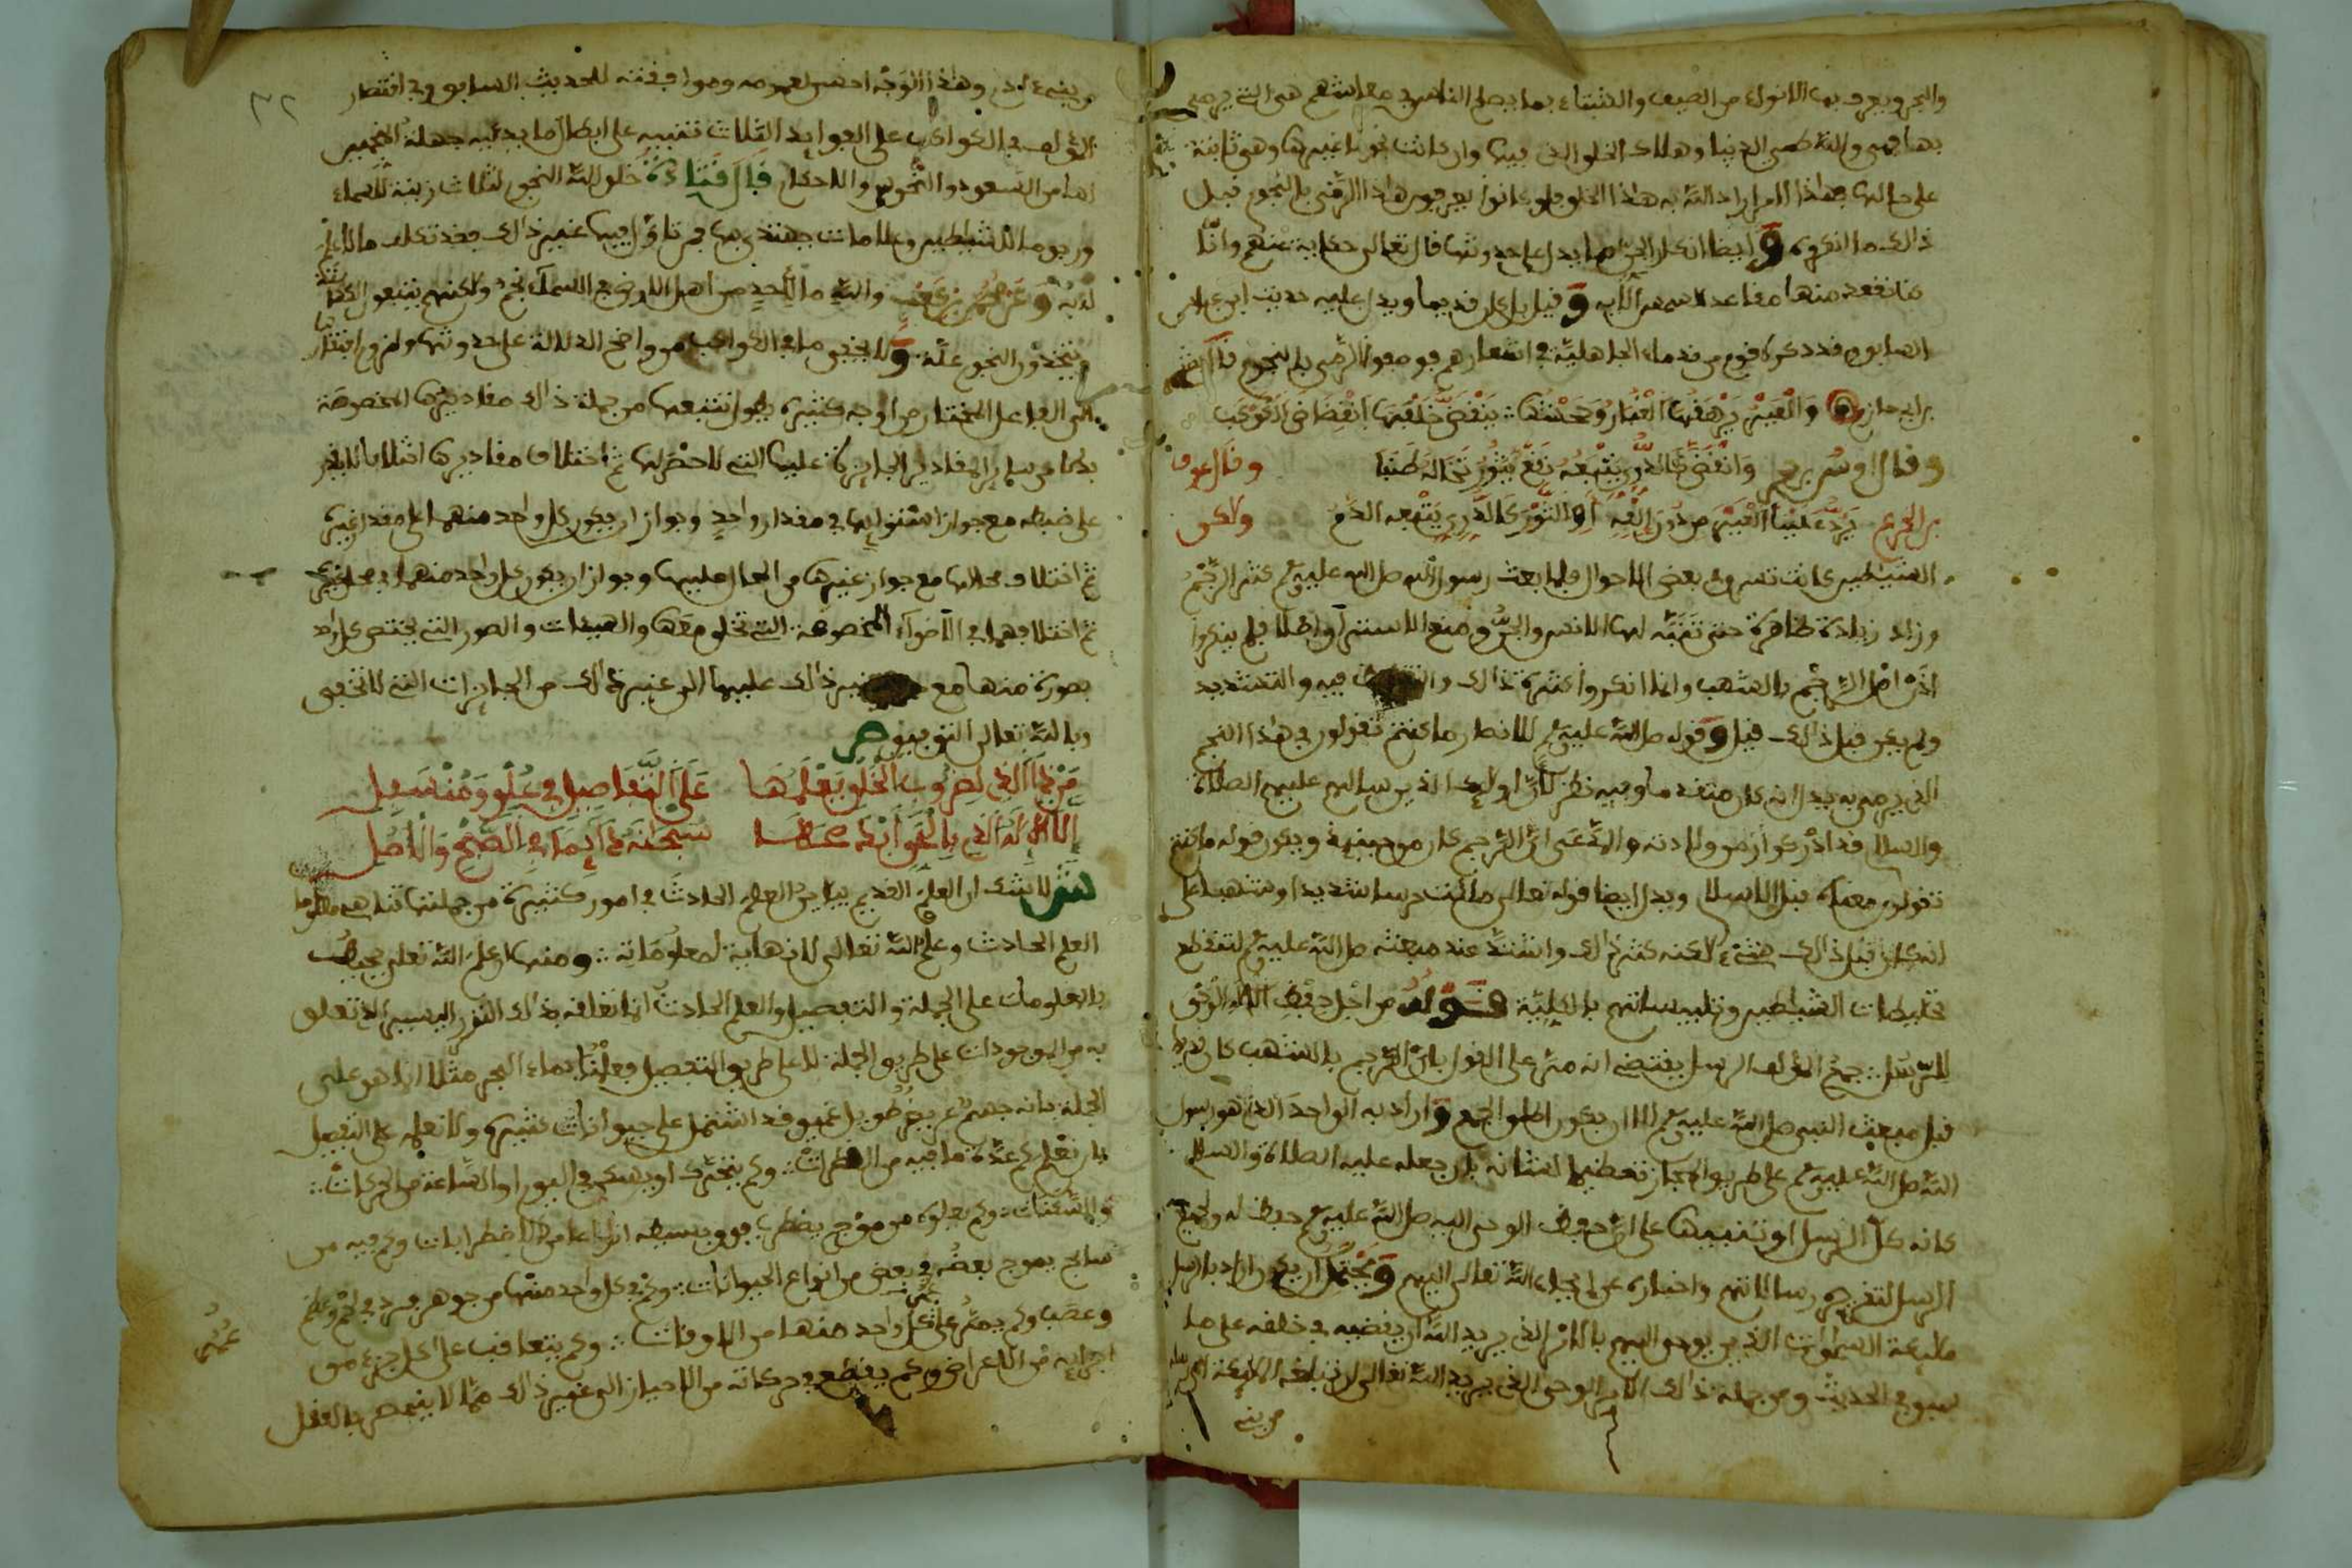 والبحر ويعرف بها الانواء من الصيف والشتاء بما يصلح الناس في معايشهم هي التي يرمى
بها فهي والله طمس الدنيا وهلاك الخلق الذي فيها وان كانت نجوما غيرها وهي ثابتة
على حالها فهذا الامر اراد الله به هذا الخلق فلو كانوا يعرفون هذا الرمي بالنجوم قبل
ذلك ما انكروه وايضا انكار الجن مما يدل على حدوثها قال تعالى حكاية عنهم وانا
كنا نقعد منها مقاعد للسمع الآية وقيل بل كان قديما ويدل عليه حديث ابن عباس
السابق وقد ذكره قوم من قدماء الجاهلية في اشعارهم فوصفوا الرمي بالنجوم قال بشر
بن ابي حازم والعير يرهقها الغبار وجحشها ينقض خلفهما انقضاض الكوكب
وقال اوس بن حجر وانقض كالدري يتبعه نقع يثور تخاله طنبا وقال عوف
بن الخرع يرد علينا العير من دون إلفه او الثور كالدري يتبعه الدم ولاكن
الشياطين كانت تسترق في بعض الاحوال فلما بعث رسول الله صلى الله عليه وسلم كثر الرجم
وزاد زيادة ظاهرة حتى تنبه لها الانس والجن ومنع الاستراق اصلا فلم ينكروا
اذن اصل الرجم بالشهب وانما انكروا كثرة ذلك فيه والتشديد
ولم يكن قبل ذلك قيل وقوله صلى الله عليه وسلم للانصار ما كنتم تقولون في هذا النجم
الذي يرمى به يدل انه كان متقدما وفيه نظر لان اولئك الذين سالهم عليهم الصلاة
والسلام قد ادركوا زمن ولادته والمدعى ان الرجم كان من حينئذ ويكون قوله ما كنتم
تقولون معناه قبل الاسلام ويدل ايضا قوله تعالى ملئت حرسا شديدا وشهبا على
انه كان قبل ذلك شيء لاكنه كثر ذلك واشتد عند مبعثه صلى الله عليه وسلم لتنقطع
تخليطات الشياطين وتلبيساتهم بالكلية قوله من اجل حفظ الله الوحي
للرسل جمع المؤلف الرسل يقتضي انه مر على القول بان الرجم بالشهب كان
قبل مبعث النبي صلى الله عليه وسلم الا ان يكون اطلق الجمع واراد به الواحد الذي هو رسول
الله صلى الله عليه وسلم على طريق المجاز تعظيما لشانه بان جعله عليه الصلاة والسلام
كانه كل الرسل او تنبيها على ان حفظ الوحي اليه صلى الله عليه وسلم حفظ له ولجميع
الرسل رسالاتهم واخباره الله تعالى اليهم ويحتمل ان يكون اراد بالرسل
ملائكة السموات الذين يوحى اليهم بالامر الذي يريد الله ان يقضيه في خلقه على ما
سبق في الحديث ومن جملة ذلك الامر الوحي الذي يريد الله تعالى ان تبلغه الملائكة
وهذا الوجه احسن لعمومه وموافقته للحديث السابق وفي اقتصار
المؤلف في الكواكب على الفوائد الثلاث تنبيه على ابطال ما يدعيه جهلة المنجمين
لها من السعود والنحوس والاحكام قال قتادة خلق الله النجوم لثلاث زينة للسماء
ورجوما للشياطين وعلامات يهتدى بها فمن تاول فيها غير ذلك فقد تكلف ما لا علم
له به وعن محمد بن كعب والله ما لاحد من اهل الارض في السماء نجم ولاكنهم يتبعون الكهنة
ويتخذون النجوم علة ولا يخفى ما في الكواكب من واضح الدلالة على حدوثها ولزوم افتقارها
الى الفاعل المختار من اوجه كثيرة يطول تتبعها من جملة ذلك مقاديرها المخصوصة
بدلا عن ساير المقادير الجايزة عليها التي لا حصر لها ثم اختلاف مقاديرها اختلافا لا يقدر
على ضبطه مع جواز استوائها في مقدار واحد وجواز ان يكون كل واحد منهما على مقدار غيره
ثم اختلاف محالها مع جواز غيرها من المحال عليها وجواز ان يكون كل واحد منهما في محل غيره
ثم اختلافهما في الاضواء المخصوصة التي تخلق معها والهيئات والصور التي يختص كل واحد
بصورة منها مع غير ذلك عليها الى غير ذلك من الجايزات التي لا تخفى
وبالله تعالى التوفيق ص
من ذا الذي لضروب الخلق يعلمها على التفاصيل في علو ومنسفل
الا الاله الذي بالقوانين سبحانه دايما في الصبح والاصل
ش لا شك ان العلم القديم يباين العلم الحادث في امور كثيرة من جملتها تناهي معلوما
العلم الحادث وعلم الله تعالى لا نهاية لمعلوماته ومنها ان علم الله تعلى محيط
بالمعلومات على الجملة والتفصيل والعلم الحادث انما تعلقه بذلك النزر اليسير الذي تعلق
به من الموجودات على طريق الجملة لا على طريق التفصيل فعلمنا بماء البحر مثلا انما هو على
الجملة بانه جسم عريض طويل عميق قد اشتمل على حيوانات كثيرة ولا نعلمه على التفصيل
بان نعلم كم عدة ما فيه من القطرات وكم يتحرك او يسكن في اليوم او الساعة من الحركات
والسكنات وكم يعلوه من موج يضطرب فوق بسيطه انواعا من الاضطرابات وكم فيه من
سابح يموج بعضه في بعض من انواع الحيوانات وكم في كل واحد منها من جوهر فرد في لحم وعظم
وعصب وكم يمر على كل واحد منها من الاوقات وكم يتعاقب على كل جزء من
اجزايه من الاعراض وكم يقطع في حركاته من الاحياز الى غير ذلك مما لا ينحصر بالعقل